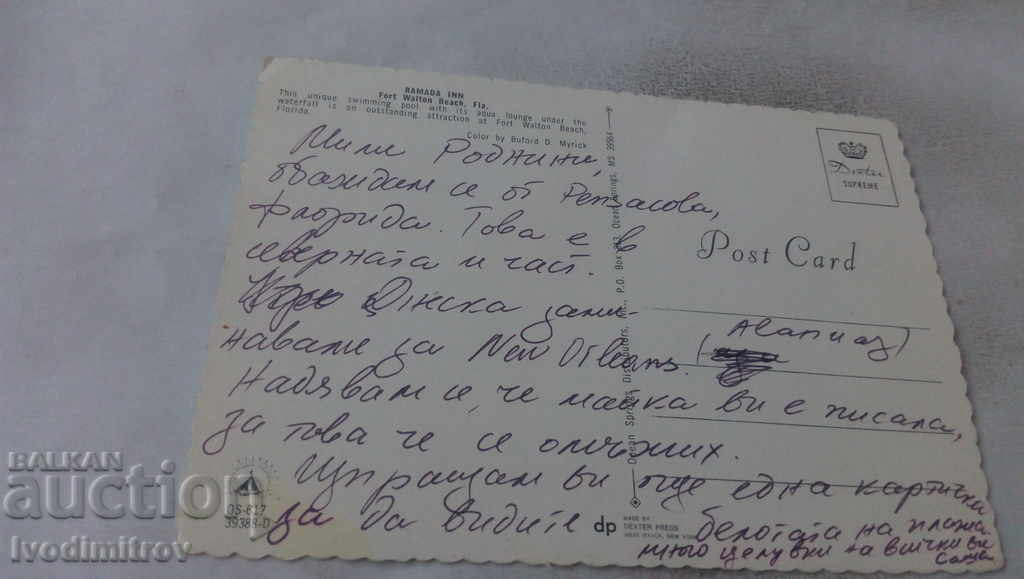 RAMADA INN
Fort Walton Beach, Fla.
This unique swimming pool with its aqua lounge under the
waterfall is an outstanding attraction at Fort Walton Beach,
Florida.
Color by Buford D. Myrick
Мили Роднини,
обаждам се от
флорида. Това е в
северната и част.
Днеска зами-
наваме за New Orleans.
Надявам се, че майка ви е писала,
за това че се омъжих.
Изпращам ви още една картичка
за да видите белотата на плажа
много целувки на всички ви
Ocean Springs Distributors, Inc., P.O. Box 282, Ocean Springs, MS 39564
Dexter
SUPREME
Post Card
OS-617
39388-D
dp
MADE BY
DEXTER PRESS
WEST NYACK, NEW YORK
BALKAN
auction
Ivodimitrov